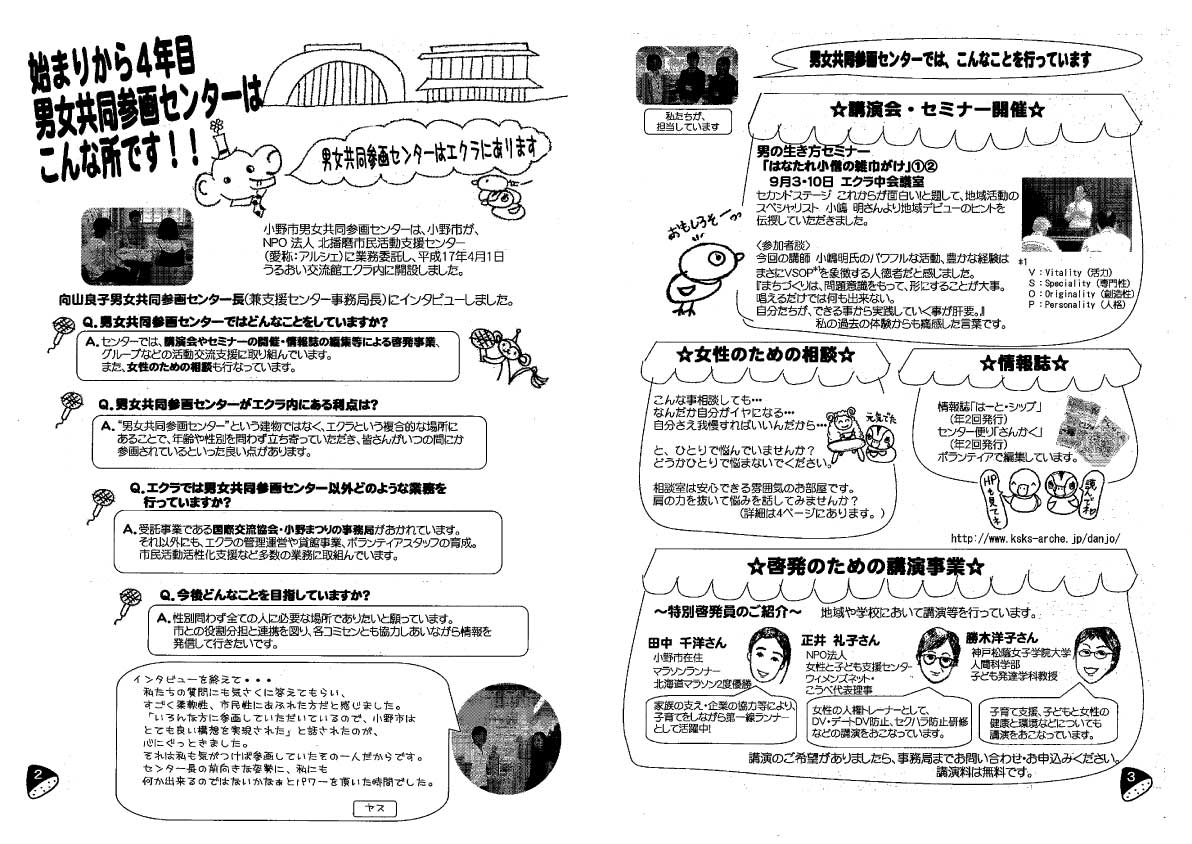 始まりから4年目
男女共同参画センターは
こんな所です！！
男女共同参画センターはエクラにあります
小野市男女共同参画センターは、小野市が、
NPO 法人 北播磨市民活動支援センター
(愛称：アルシェ)に業務委託し、平成17年4月1日
うるおい交流館エクラ内に開設しました。
向山良子男女共同参画センター長(兼支援センター事務局長)にインタビューしました。
Q. 男女共同参画センターではどんなことをしていますか？
A. センターでは、講演会やセミナーの開催・情報誌の編集等による啓発事業、
グループなどの活動交流支援に取り組んでいます。
また、女性のための相談も行なっています。
Q. 男女共同参画センターがエクラ内にある利点は？
A. “男女共同参画センター”という建物ではなく、エクラという複合的な場所に
あることで、年齢や性別を問わず立ち寄っていただき、皆さんがいつの間にか
参画されているといった良い点があります。
Q. エクラでは男女共同参画センター以外どのような業務を
行っていますか？
A. 受託事業である国際交流協会・小野まつりの事務局がおかれています。
それ以外にも、エクラの管理運営や貸館事業、ボランティアスタッフの育成。
市民活動活性化支援など多数の業務に取組んでいます。
Q. 今後どんなことを目指していますか？
A. 性別問わず全ての人に必要な場所でありたいと願っています。
市との役割分担と連携を図り、各コミセンとも協力しあいながら情報を
発信して行きたいです。
インタビューを終えて・・・
私たちの質問にも気さくに答えてもらい、
すごく柔軟性、市民性にあふれた方だと感じました。
「いろんな方に参画していただいているので、小野市は
とても良い構想を実現された」と話されたのが、
心にぐっときました。
それは私も気がつけば参画していたその一人だからです。
センター長の前向きな姿勢に、私にも
何か出来るのではないかなぁとパワーを頂いた時間でした。
ヤス
2
男女共同参画センターでは、こんなことを行っています
私たちが、
担当しています
☆講演会・セミナー開催☆
男の生き方セミナー
「はなたれ小僧の雑巾がけ」①②
9月3・10日 エクラ中会議室
セカンドステージ これからが面白い!と題して、地域活動の
スペシャリスト 小嶋 明さんより地域デビューのヒントを
伝授していただきました。
おもしろそー
〈参加者談〉
今回の講師 小嶋明氏のパワフルな活動、豊かな経験は
まさにVSOP*1を象徴する人徳者だと感じました。
『まちづくりは、問題意識をもって、形にすることが大事。
唱えるだけでは何も出来ない。
自分たちが、できる事から実践していく事が肝要。』
私の過去の体験からも痛感した言葉です。
*1
V：Vitality (活力)
S：Speciality (専門性)
O：Originality (創造性)
P：Personality (人格)
☆女性のための相談☆
こんな事相談しても…
なんだか自分がイヤになる…
自分さえ我慢すればいいんだから…
と、ひとりで悩んでいませんか？
どうかひとりで悩まないでください。
相談室は安心できる雰囲気のお部屋です。
肩の力を抜いて悩みを話してみませんか？
(詳細は4ページにあります。)
元気でた
☆情報誌☆
情報誌「はーと・シップ」
(年2回発行)
センター便り「さんかく」
(年2回発行)
ボランティアで編集しています。
HPも見てネ
読んでネ
http://www.ksks-arche.jp/danjo/
☆啓発のための講演事業☆
～特別啓発員のご紹介～ 地域や学校において講演等を行っています。
田中 千洋さん
小野市在住
マラソンランナー
北海道マラソン2度優勝
家族の支え・企業の協力等により、
子育てをしながら第一線ランナー
として活躍中!
正井 礼子さん
NPO法人
女性と子ども支援センター
ウィメンズネット・
こうべ代表理事
女性の人権トレーナーとして、
DV・デートDV防止、セクハラ防止研修
などの講演をおこなっています。
勝木洋子さん
神戸松蔭女子学院大学
人間科学部
子ども発達学科教授
子育て支援、子どもと女性の
健康と環境などについても
講演をおこなっています。
講演のご希望がありましたら、事務局までお問い合わせ・お申込みください。
講演料は無料です。
3